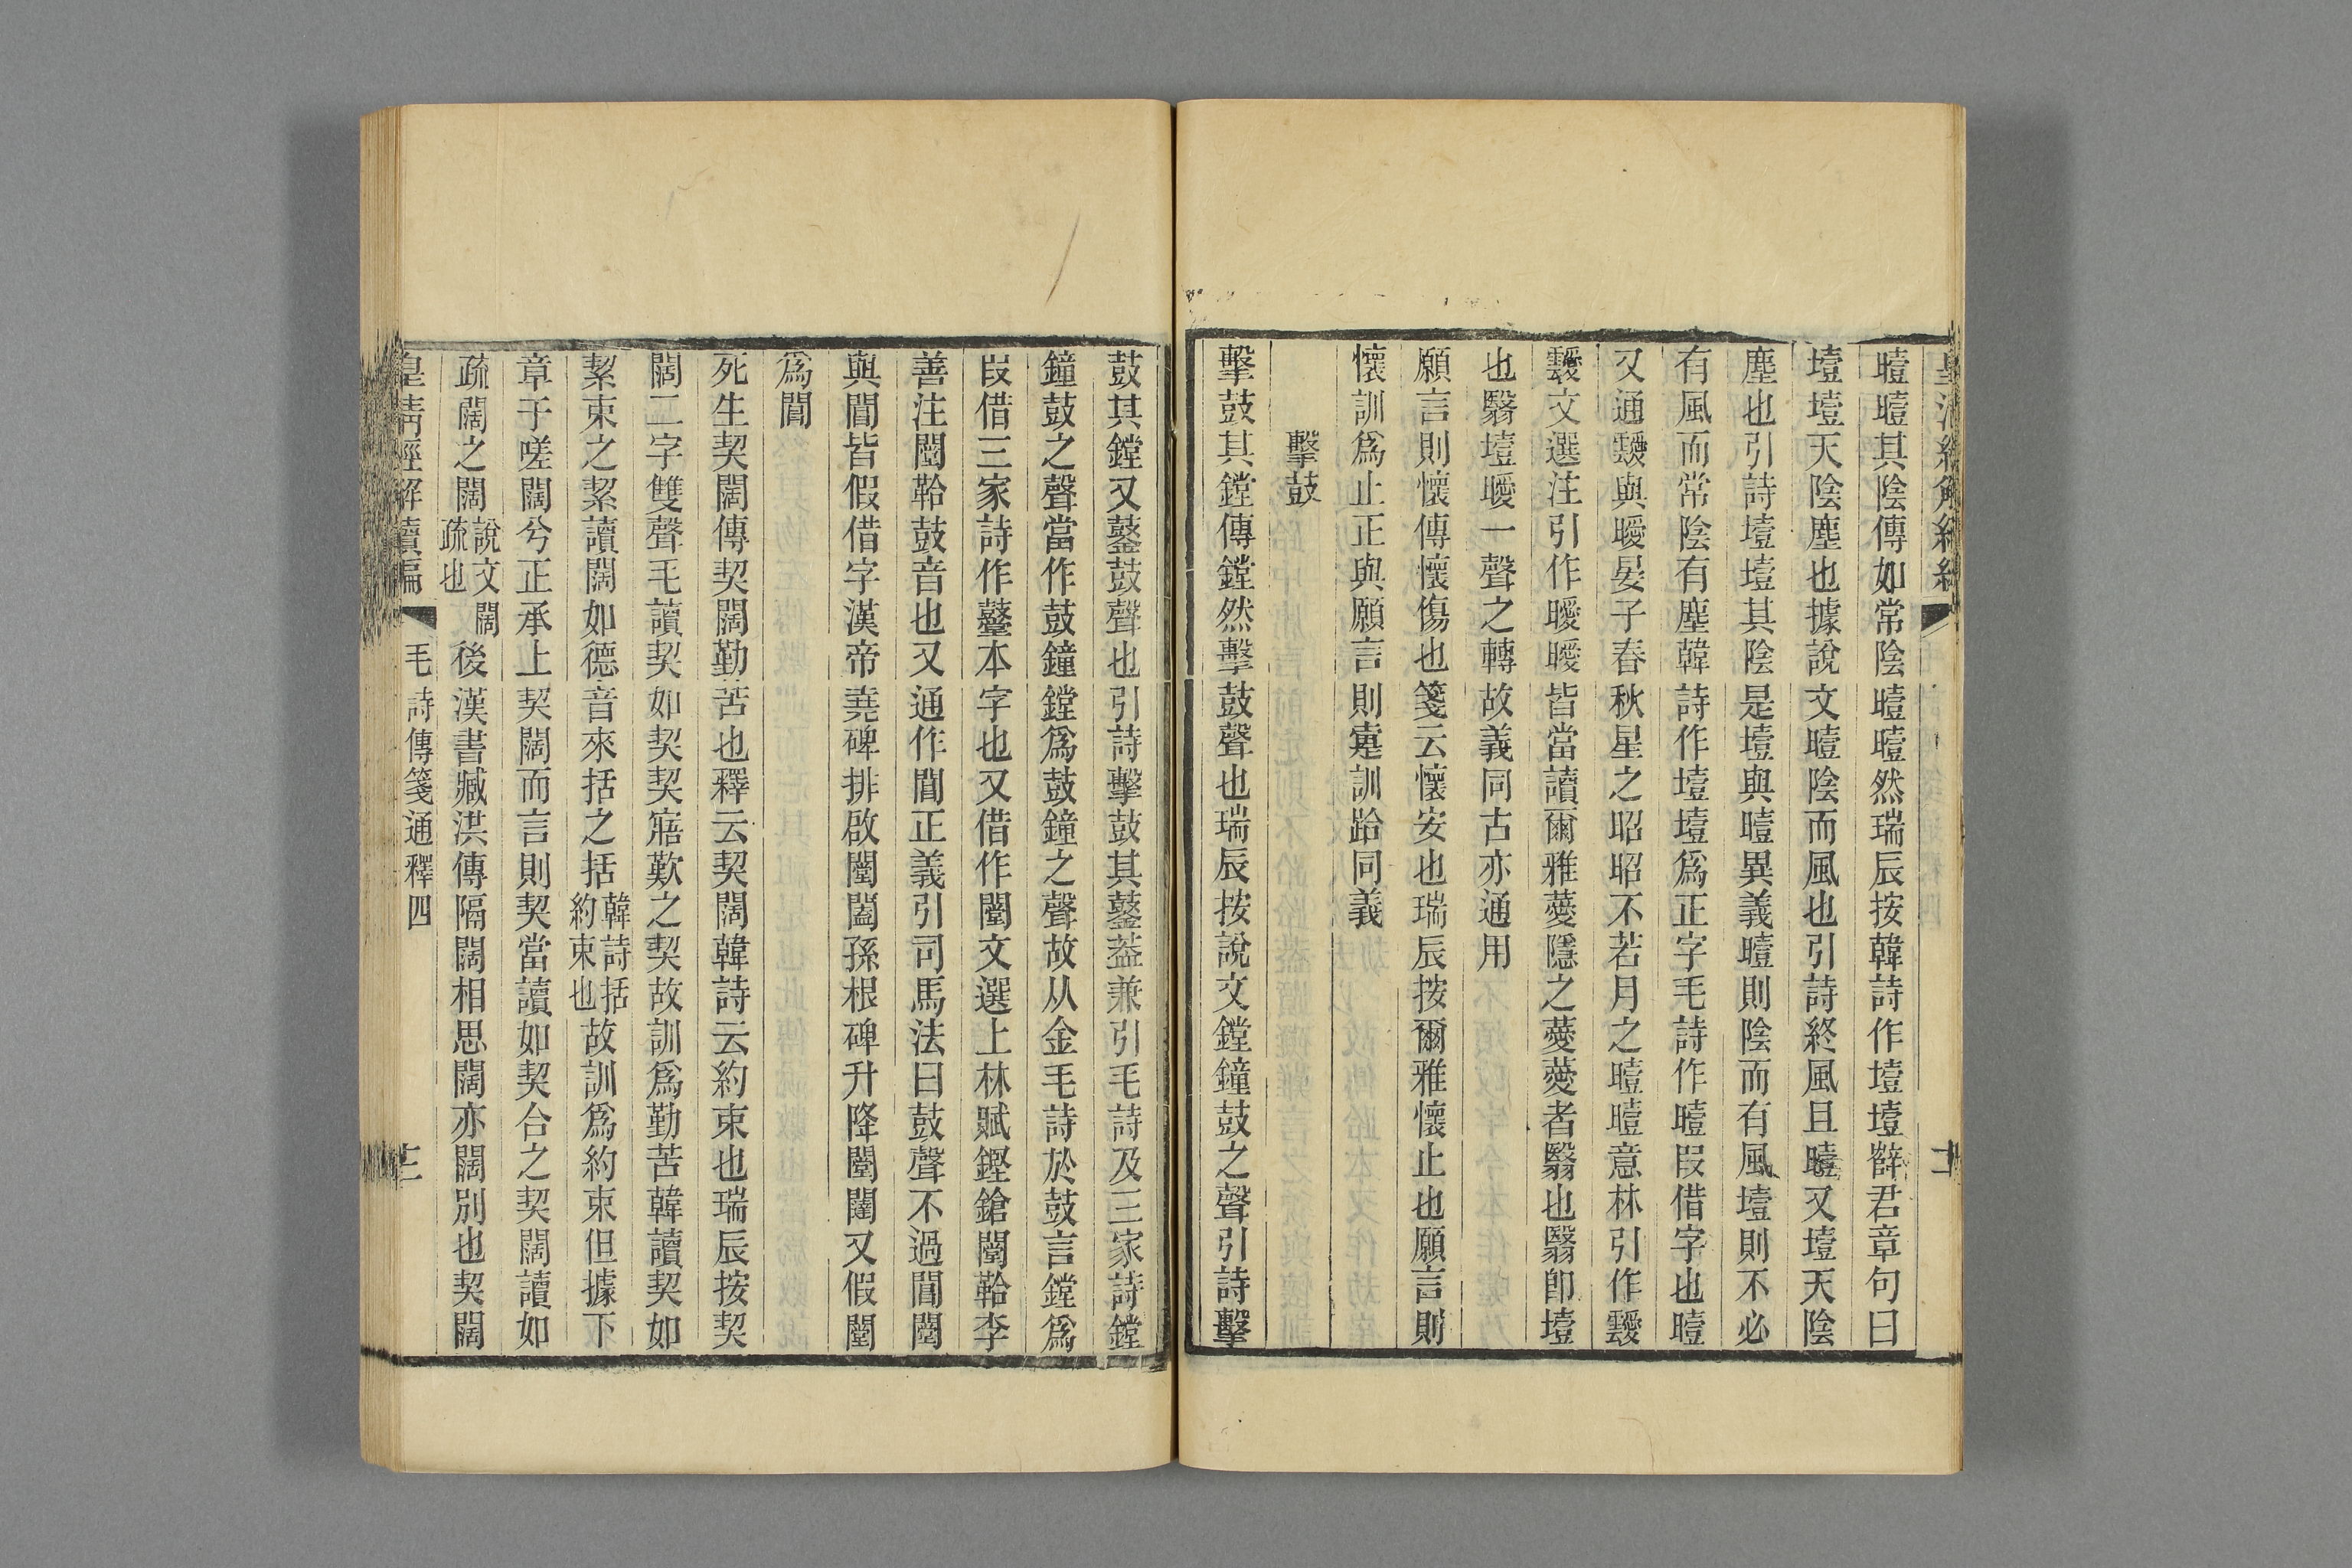 曀曀其陰傳如常陰曀曀然瑞辰按韓詩作壇壇薛君章句曰
壇壇天陰塵也據說文曀陰而風也引詩終風且曀又壇天陰
塵也引詩壇壇其陰是壇與曀異義曀則陰而有風壇則不必
有風而常陰有塵韓詩作壇壇爲正字毛詩作曀叚借字也曀
又通靉與曖晏子春秋星之昭昭不若月之曀曀意林引作靉
靉文選注引作曖曖皆當讀爾雅薆隱之薆薆者翳也翳卽壇
也翳壇曖一聲之轉故義同古亦通用
願言則懷傳懷傷也箋云懷安也瑞辰按爾雅懷止也願言則
懷訓爲止正與願言則疐訓跲同義
擊鼓
擊鼓其鏜傳鏜然擊鼓聲也瑞辰按說文鏜鐘鼓之聲引詩擊
鼓其鏜又鼞鼓聲也引詩擊鼓其鼞葢兼引毛詩及三家詩鏜
鐘鼓之聲當作鼓鐘鏜爲鼓鐘之聲故从金毛詩於鼓言鏜爲
叚借三家詩作鼞本字也又借作闛文選上林賦鏗鎗闛鞈李
善注闛鞈鼓音也又通作閶正義引司馬法曰鼓聲不過閶闛
與閶皆假借字漢帝堯碑排啟闛闔孫根碑升降闛闥又假闛
爲閶
死生契闊傳契闊勤苦也釋云契闊韓詩云約束也瑞辰按契
闊二字雙聲毛讀契如契契寤歎之契故訓爲勤苦韓讀契如
絜束之絜讀闊如德音來括之括韓詩括約束也故訓爲約束但據下
章于嗟闊兮正承上契闊而言則契當讀如契合之契闊讀如
疏闊之闊說文闊疏也後漢書臧洪傳隔闊相思闊亦闊別也契闊
皇清經解續編 毛詩傳箋通釋四